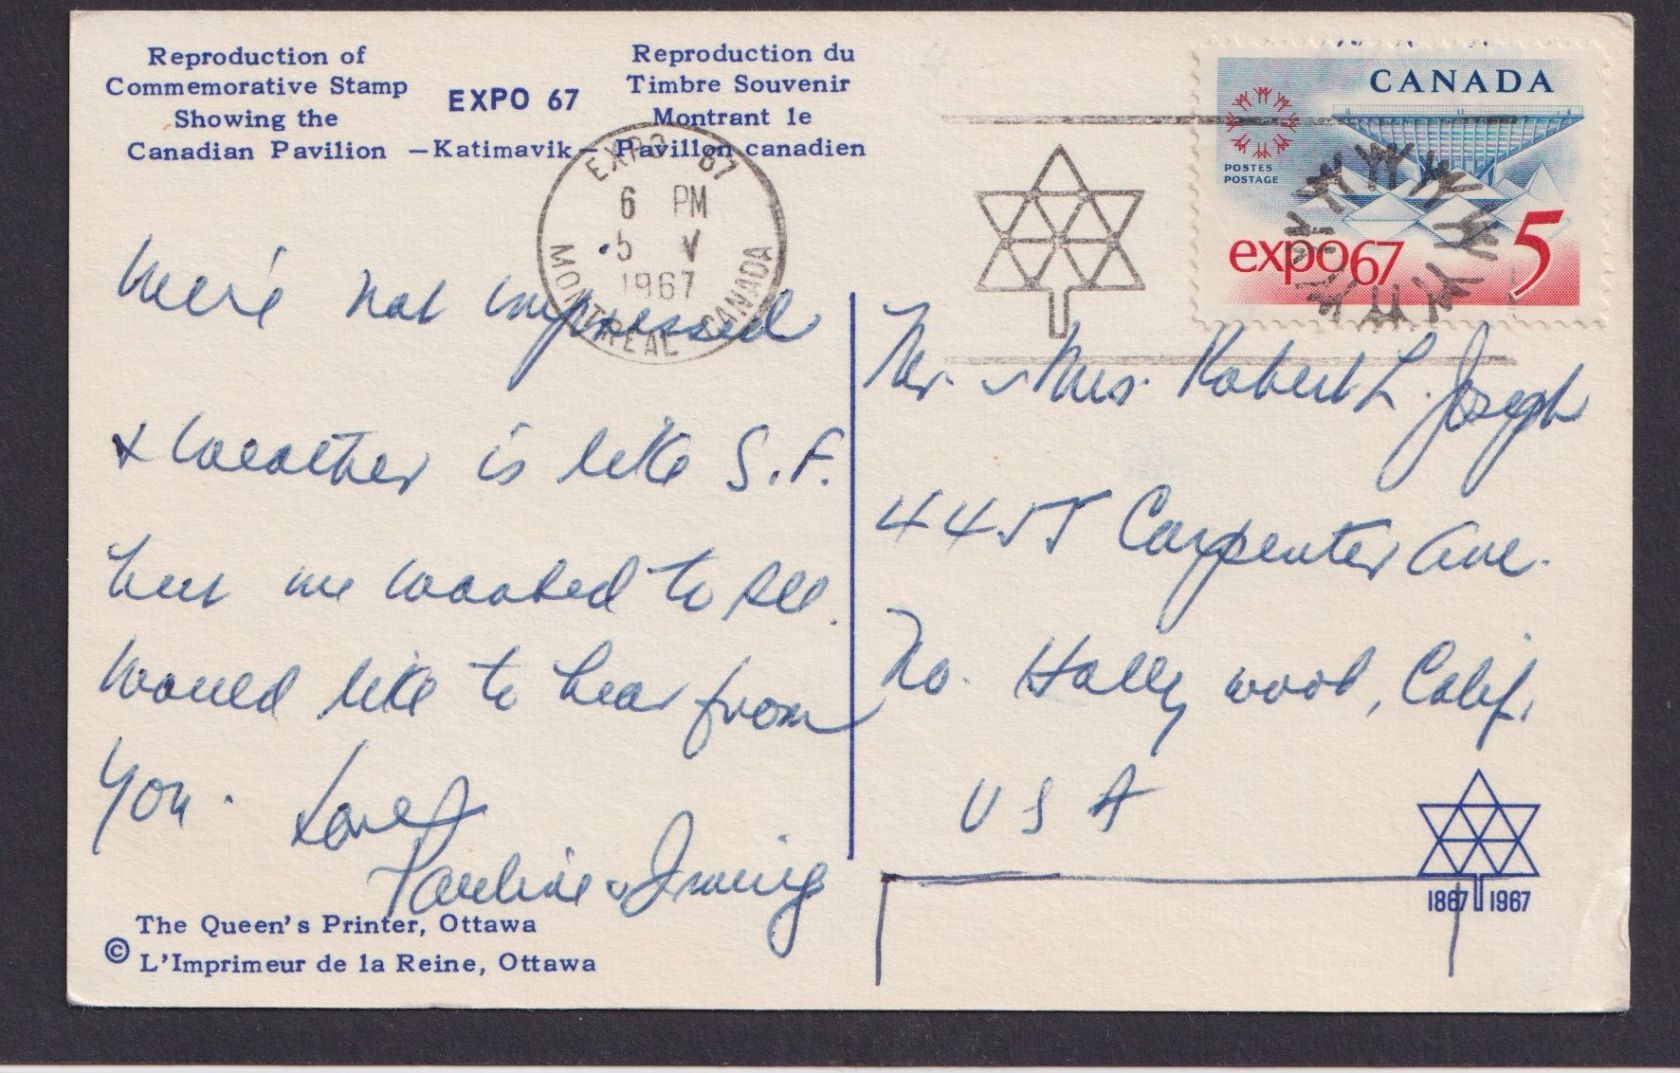 Reproduction of
Commemorative Stamp
Showing the
Canadian Pavilion
EXPO 67
—Katimavik—
Reproduction du
Timbre Souvenir
Montrant le
Pavillon canadien
EXPO 67
6 PM
5 V
1967
MONTREAL CANADA
CANADA
POSTES
POSTAGE
expo67
5
We're not impressed
& weather is like S.F.
but we wanted to see.
Would like to hear from
you. Love
Pauline & Irving
Mr. & Mrs. Robert L. Joseph
4455 Carpenter Ave.
No. Hollywood, Calif.
USA
1867 1967
The Queen's Printer, Ottawa
©
L'Imprimeur de la Reine, Ottawa